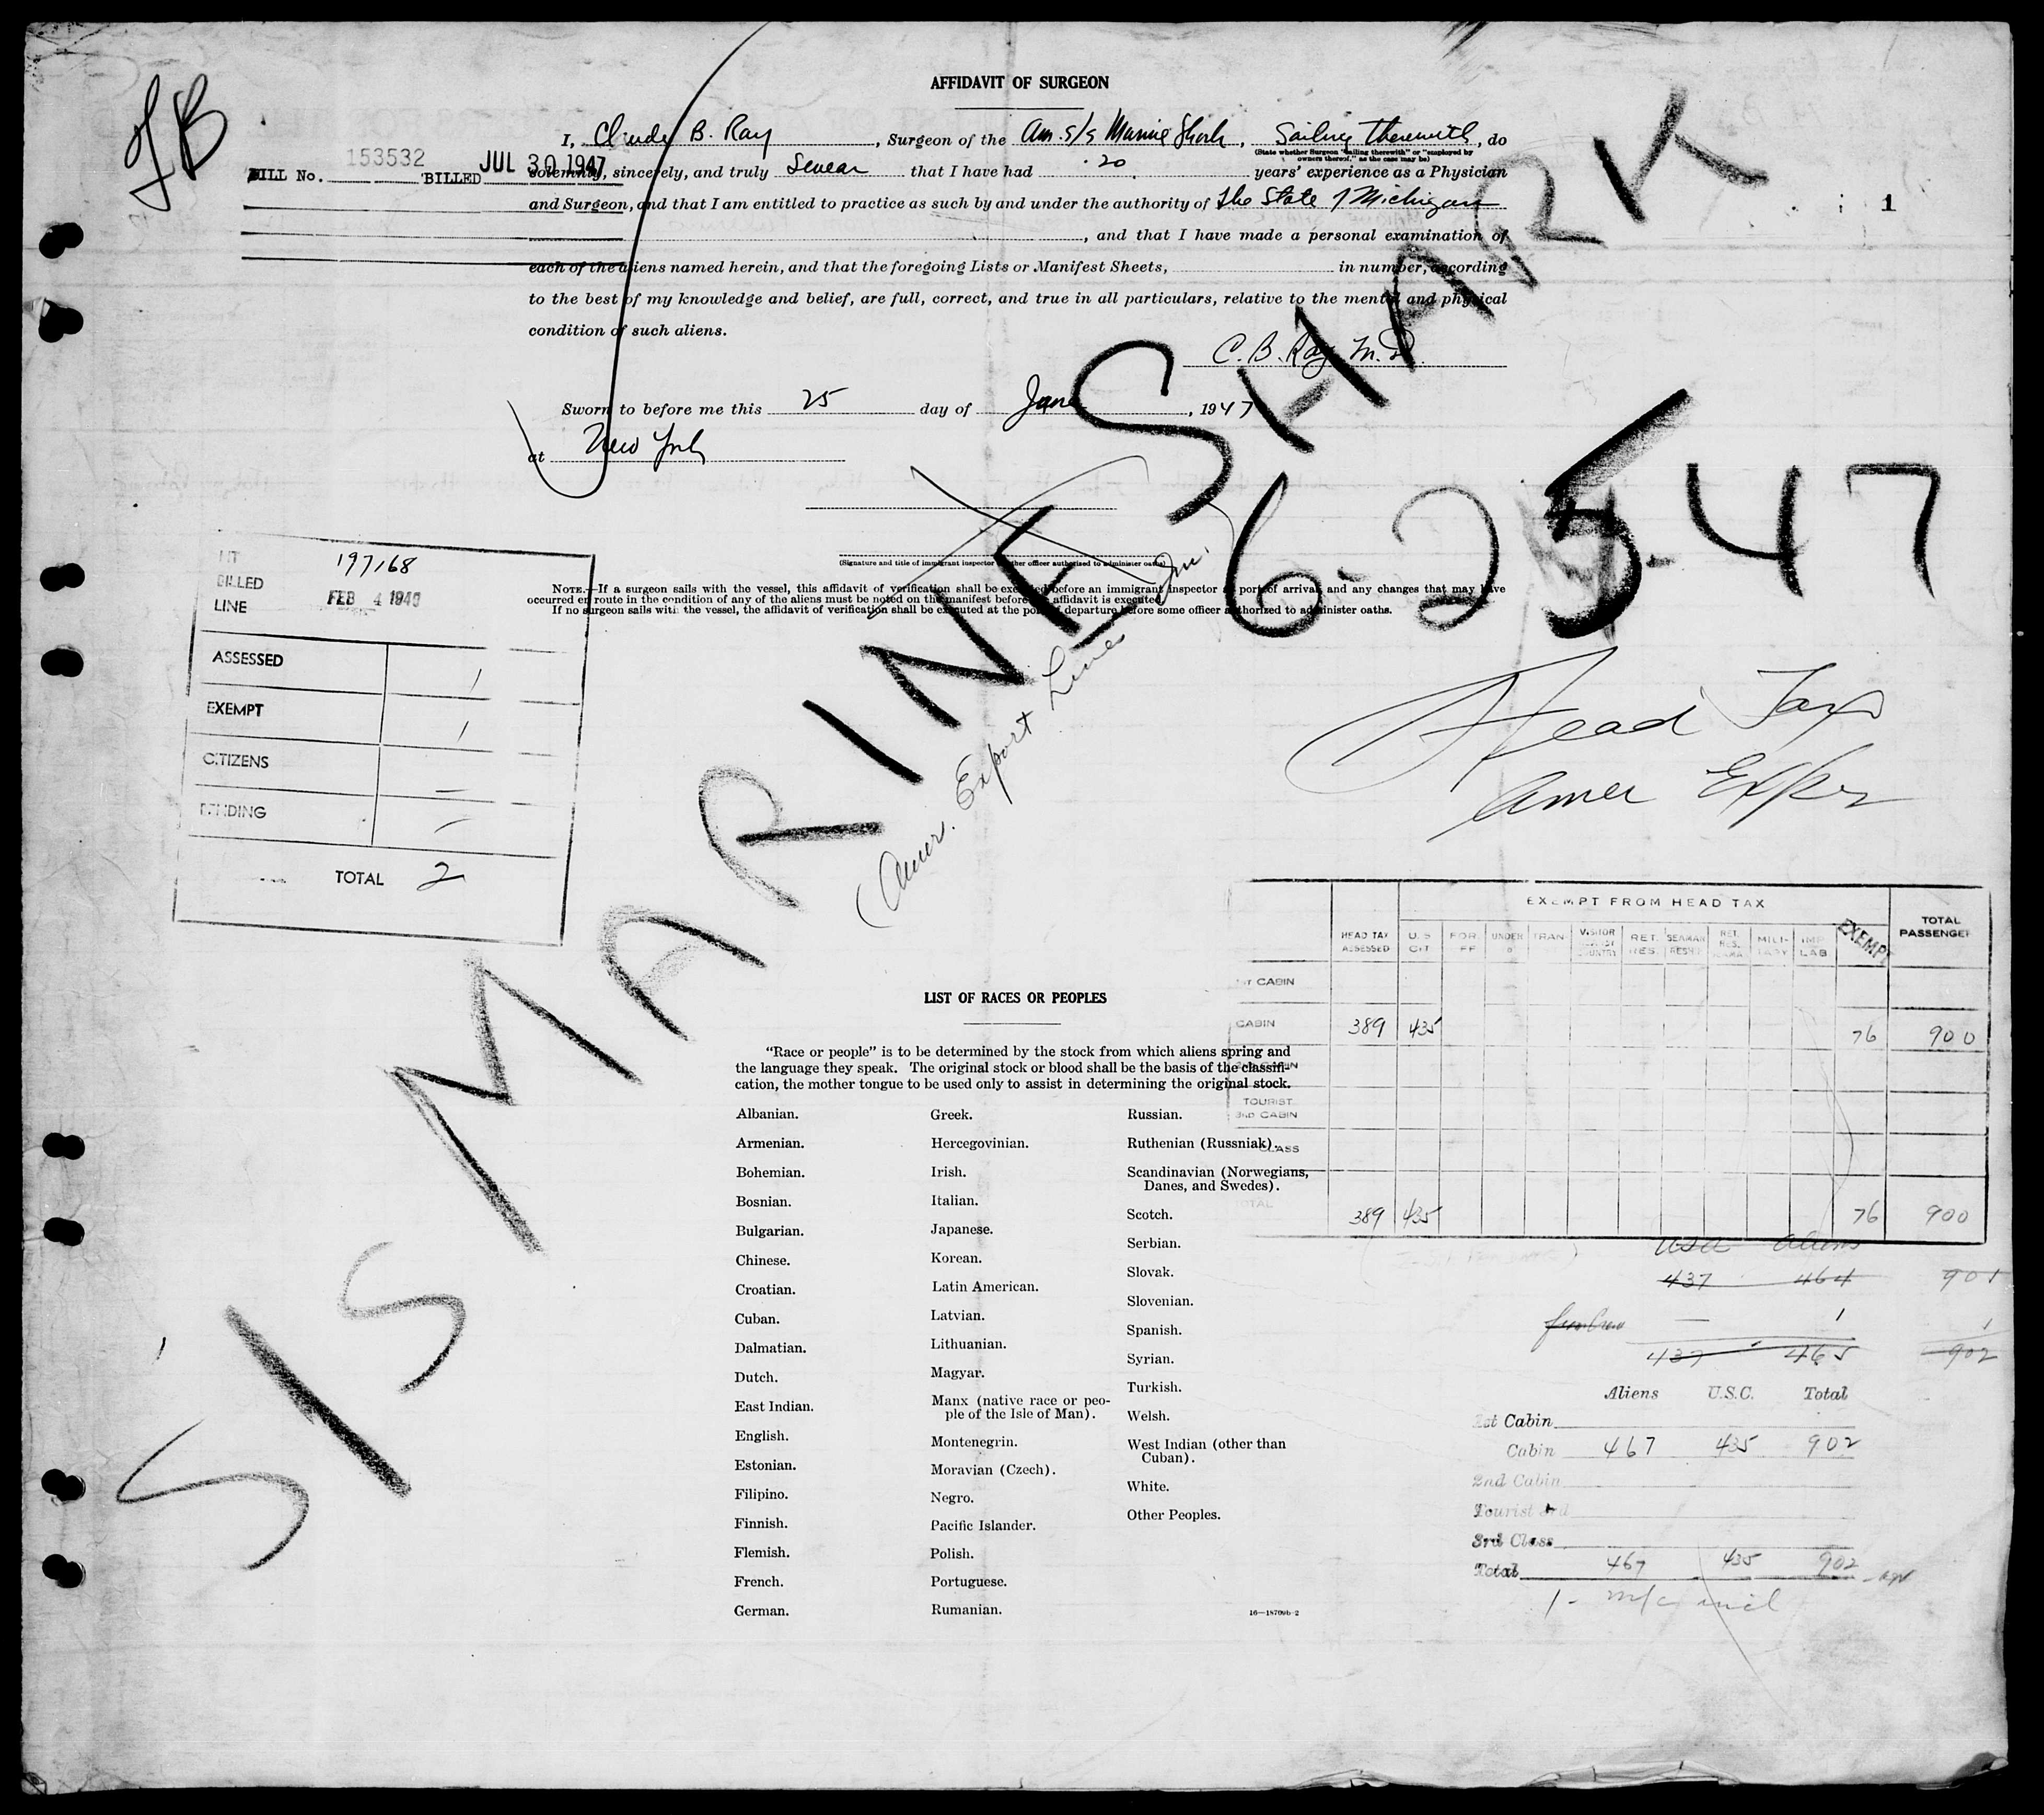 AFFIDAVIT OF SURGEON
I, Claude B. Ray, Surgeon of the Am. s/s Marine Shark, Sailing therewith, do
(State whether Surgeon "sailing therewith" or "employed by owners thereof," as the case may be)
solemnly, sincerely, and truly swear that I have had 20 years' experience as a Physician
and Surgeon, and that I am entitled to practice as such by and under the authority of the State of Michigan
, and that I have made a personal examination of
each of the aliens named herein, and that the foregoing Lists or Manifest Sheets, in number, according
to the best of my knowledge and belief, are full, correct, and true in all particulars, relative to the mental and physical
condition of such aliens.
C. B. Ray M.D.
Sworn to before me this 25 day of June, 1947
at New York
(Signature and title of immigrant inspector or other officer authorized to administer oaths)
NOTE.—If a surgeon sails with the vessel, this affidavit of verification shall be executed before an immigrant inspector at port of arrival and any changes that may have
occurred en route in the condition of any of the aliens must be noted on the manifest before the affidavit is executed.
If no surgeon sails with the vessel, the affidavit of verification shall be executed at the port of departure before some officer authorized to administer oaths.
BILL No. 153532 BILLED JUL 30 1947
1
S/S MARINE SHARK
6-25-47
(Amer. Export Lines
Head Tax
Amer Export
HT 197168
BILLED FEB 4 194
LINE
ASSESSED 1
EXEMPT 1
CITIZENS —
PENDING —
TOTAL 2
EXEMPT FROM HEAD TAX
HEAD TAX ASSESSED U.S. CIT FOR. UNDER TRAN VISITOR COUNTRY RET. RES. SEAMAN RET. RES. MILITARY LAB EXEMPT TOTAL PASSENGER
1st CABIN
CABIN 389 435 76 900
TOURIST
3rd CABIN
CLASS
TOTAL 389 435 76 900
USA Aliens
437 464 901
— 1 1
437 465 902
Aliens U.S.C. Total
1st Cabin
Cabin 467 435 902
2nd Cabin
Tourist 3rd
3rd Class
Total 467 435 902
LIST OF RACES OR PEOPLES
"Race or people" is to be determined by the stock from which aliens spring and
the language they speak. The original stock or blood shall be the basis of the classifi-
cation, the mother tongue to be used only to assist in determining the original stock.
Albanian.
Armenian.
Bohemian.
Bosnian.
Bulgarian.
Chinese.
Croatian.
Cuban.
Dalmatian.
Dutch.
East Indian.
English.
Estonian.
Filipino.
Finnish.
Flemish.
French.
German.
Greek.
Hercegovinian.
Irish.
Italian.
Japanese.
Korean.
Latin American.
Latvian.
Lithuanian.
Magyar.
Manx (native race or peo-
ple of the Isle of Man).
Montenegrin.
Moravian (Czech).
Negro.
Pacific Islander.
Polish.
Portuguese.
Rumanian.
Russian.
Ruthenian (Russniak).
Scandinavian (Norwegians,
Danes, and Swedes).
Scotch.
Serbian.
Slovak.
Slovenian.
Spanish.
Syrian.
Turkish.
Welsh.
West Indian (other than
Cuban).
White.
Other Peoples.